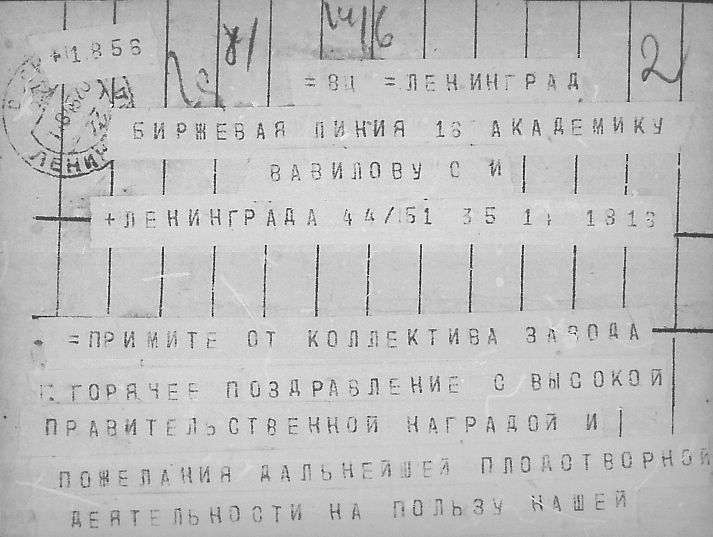 +1856
2
=ВЦ =ЛЕНИНГРАД
БИРЖЕВАЯ ЛИНИЯ 16 АКАДЕМИКУ
ВАВИЛОВУ С И
+ЛЕНИНГРАДА 44/51 35 14 1818
=ПРИМИТЕ ОТ КОЛЛЕКТИВА ЗАВОДА
ГОРЯЧЕЕ ПОЗДРАВЛЕНИЕ С ВЫСОКОЙ
ПРАВИТЕЛЬСТВЕННОЙ НАГРАДОЙ И
ПОЖЕЛАНИЯ ДАЛЬНЕЙШЕЙ ПЛОДОТВОРНОЙ
ДЕЯТЕЛЬНОСТИ НА ПОЛЬЗУ НАШЕЙ